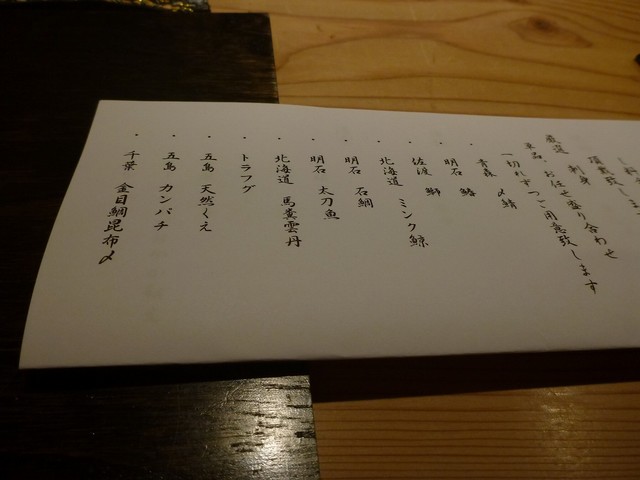 厳選 刺身
単品、お任せ盛り合わせ
一切れずつご用意致します
・青森 〆鯖
・明石 鰆
・佐渡 鰤
・北海道 ミンク鯨
・明石 石鯛
・明石 太刀魚
・北海道 馬糞雲丹
・トラフグ
・五島 天然くえ
・五島 カンパチ
・千葉 金目鯛昆布〆